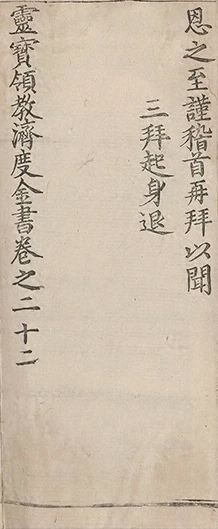 恩之至謹稽首再拜以聞
三拜起身退
靈寶領教濟度金書卷之二十二